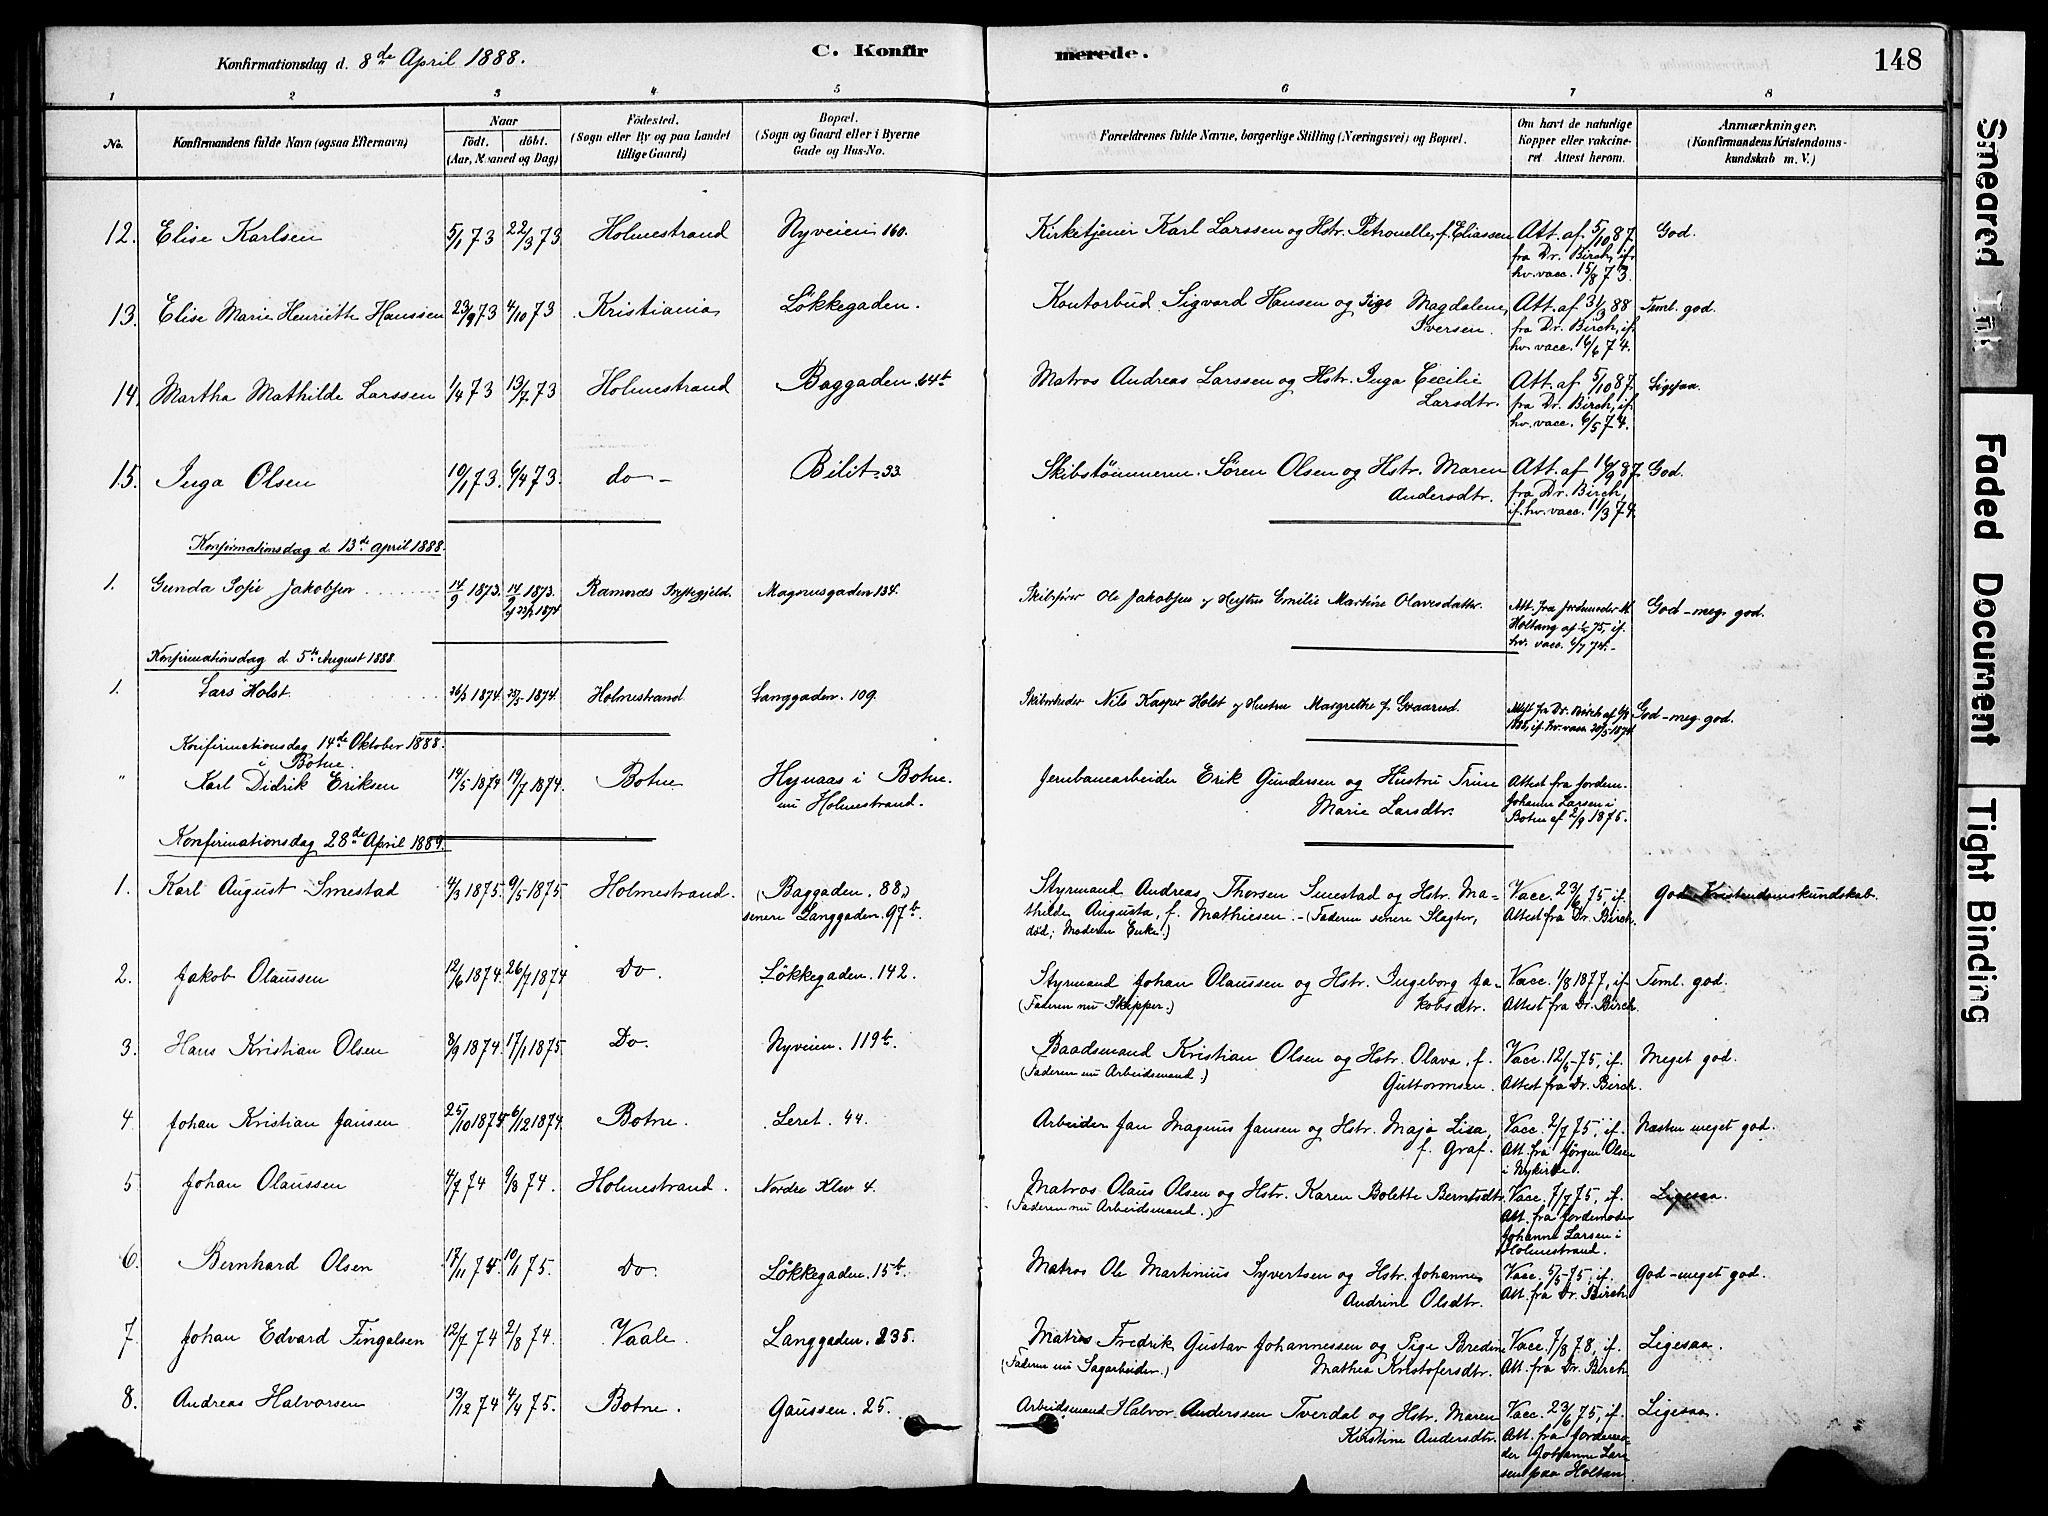 Konfirmationsdag d. 8de April 1888.
C. Konfir
merede.
148
1 2 3 4 5 6 7 8
No.
Konfirmandens fulde Navn (ogsaa Efternavn)
Naar
Födt. döbt.
(Aar, Maaned og Dag)
Födested.
(Sogn eller By og paa Landet
tillige Gaard)
Bopæl.
(Sogn og Gaard eller i Byerne
Gade og Hus-No.
Forældrenes fulde Navne, borgerlige Stilling (Næringsvei) og Bopæl.
Om havt de naturlige
Kopper eller vakcine-
ret Attest herom.
Anmærkninger.
(Konfirmandens Kristendoms-
kundskab m. V.)
12. Elise Karlsen 5/1 73 22/3 73 Holmestrand Nyveien 160. Kirketjener Karl Larssen og Hstr. Petronelle, f. Eliassen Att. af 5/10 87 God.
fra Dr. Birch, if.
hv. vacc. 15/8 73.
13. Elise Marie Henriette Hanssen 23/9 73 4/10 73 Kristiania Lökkegaden. Kontorbud Sigvard Hansen og Pige Magdalene Att. af 3/3 88 Teml. god.
Iversen. fra Dr. Birch, if.
hv. vacc. 16/6 74.
14. Martha Mathilde Larssen 1/4 73 13/7 73 Holmestrand Baggaden 64b Matros Andreas Larssen og Hstr. Inga Cecilie Att. af 5/10 87. Ligesaa.
Larsdtr. fra Dr. Birch, if.
hv. vacc. 6/5 74.
15. Inga Olsen 10/1 73. 6/4 73. do - Bilit 33 Skibstömmerm. Sören Olsen og Hstr. Maren Att. af 16/9 87. God.
Andersdtr. fra Dr. Birch,
if. hv. vacc. 11/3 74.
Konfirmationsdag d. 13de April 1888.
1. Gunda Sofie Jakobsen 14/9 1873. 14/9 1873. Ramnæs Præstegjeld. Magnusgaden 134. Skibsförer Ole Jakobsen og Hustru Emilie Martine Olavesdatter. Att. fra Jordemoder God - meg. god.
Holtang af 75, if.
hv. vacc. 6/7 74.-
Konfirmationsdag d 5te August 1888.
1. Lars Holst. 26/3 1874. 25/5 1874. Holmestrand Langgaden. 109. Skibsreder Nils Kasper Holst og Hustru Margrethe f. Gvaarud. Attest fra Dr. Birch God - meg. god.
1888, if. hv. vacc. 20/5 1874
Konfirmationsdag 14de Oktober 1888.
i Botne.
" Karl Didrik Eriksen 14/5 1874 19/7 1874. Botne Hynaas i Botne. Jernbanearbeider Erik Gundersen og Hustru Trine Attest fra Jordem.
nu Holmestrand. Marie Larsdtr. Johanne Larsen i
Botne af 2/9 1875.
Konfirmationsdag 28de April 1889.
1. Karl August Smestad 4/3 1875. 9/5 1875 Holmestrand. (Baggaden. 88,) Styrmand Andreas Thorsen Smestad og Hstr. Ma- Vacc. 23/6 75, if. God Kristendomskundskab.
senere Langgaden. 97b thilde Augusta, f. Mathiesen. - (Faderen senere Slagter, Attest fra Dr. Birch.
död; Moderen Enke.)
2. Jakob Olaussen 12/6 1874 26/7 1874 Do. Lökkegaden. 142. Styrmand Johan Olaussen og Hstr. Ingeborg Ja- Vacc. 1/8 1877, if. Teml. god.
(Faderen nu Skipper.) kobsdtr. Attest fra Dr. Birch.
3. Hans Kristian Olsen 8/9 1874. 17/1 1875. Do. Nyveien. 119b. Baadsmand Kristian Olsen og Hstr. Olava, f. Vacc. 12/5 75, if. Meget god.
(Faderen nu Arbeidsmand.) Guttormsen. Attest fra Dr. Birch.
4. Johan Kristian Jansen 25/10 1874 6/12 1874. Botne. Leret. 44. Arbeider Jan Magnus Jansen og Hstr. Maja Lisa, Vacc. 2/7 75, if. Næsten meget god.
f. Graf. Att. fra Jörgen Olsen
i Nykirke.
5 Johan Olaussen 4/7 74 9/8 74. Holmestrand. Nordre Klev 4. Matros Olaus Olsen og Hstr. Karen Bolette Berntsdtr. Vacc. 7/7 75, if. Ligesaa.
(Faderen nu Arbeidsmand.) Att. fra Jordemoder
Johanne Larsen i
Holmestrand.
6 Bernhard Olsen 17/11 74. 10/1 75. Do. Lökkegaden. 15b. Matros Ole Martinius Syvertsen og Hstr. Johanne Vacc. 5/5 75, if. God - meget god.
Andrine Olsdtr. Att. fra Dr. Birch.
7. Johan Edvard Fingalsen 12/7 74 2/8 74. Vaale. Langgaden. 235. Matros Fredrik Gustav Johannessen og Pige Bredine Vacc. 7/8 78, if. Ligesaa.
(Faderen nu Sagarbeider.) Mathea Kristofersdtr. Att. fra Dr. Birch.
8. Andreas Halvorsen 13/12 74 4/4 75. Botne. Gaussen. 25. Arbeidsmand Halvor Anderssen Tverdal og Hstr. Maren Vacc. 23/6 75, if. Ligesaa.
Kirstine Andersdtr. Att. fra Jordemo-
der Johanne Lar-
sen paa Holtan.
Smeared Ink
Faded Document
Tight Binding